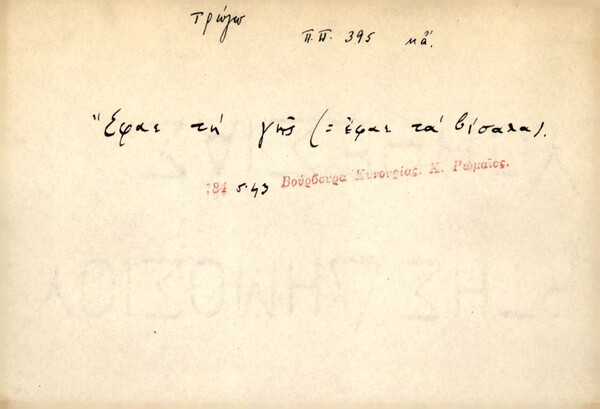 τρώγω
Π.Π. 395 κἄ.
Ἔφαε τή γῆς (= ἔφαε τά βίσαλα).
184 5.43 Βούρβουρα Κυνουρίας, Κ. Ρωμαῖος.